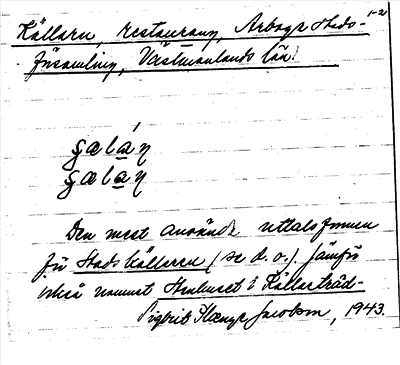 1-2
Källarn, restaurang, Arboga Stads-
församling, Västmanlands län.
Den mest använda uttalsformen
för Stadskällaren (se d. o.). Jämför
också namnet Stenhuset i Källarträd-
Sigbrit Plænge Jacobson, 1943.